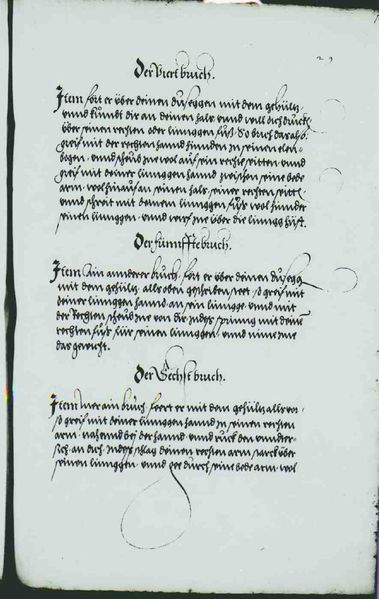 29
Der viert bruch.
Item fert er über deinen duseggen mit dem gehültz
vnnd kumbt dir an deinen halß vnnd will dich drucke
über seinen rechten oder linnggen fuß So buch dar ab
greif mit der rechten hannd hinnden Zu seinen elen-
bogen vnnd scheub Ine wol auf sein rechte seitten vnnd
greif mit deiner linnggen hannd zwischen seine bede
arm wol hinauf an seinen halß seiner rechten seitt
vnnd schreit mit deinem linnggen fuß wol hinnder
seinen linnggen vnnd wirf Ine über die lingg hüft.
Der fünnffte bruch.
Item Ain annderer bruch fert er über deinen dusegg
mit dem gehültz alls oben geschriben steet so greif mit
deiner linnggen hannd an sein lingge vnnd mit
der Rechten scheub Ine von dir Indes spring mit deine
rechten fuß für seinen linnggen vnnd nime Ime
das gewicht.
Der Sechst bruch.
Item Mer ain bruch feert er mit dem gehültz alls vor
so greif mit deiner linnggen hannd Zu seinen rechten
arm nahennd bej der hannd vnnd ruck den vnnder
sich an dich Indes schlag deinen rechten arm starck über
seinen linnggen vnnd gee durch sein bede arm wol